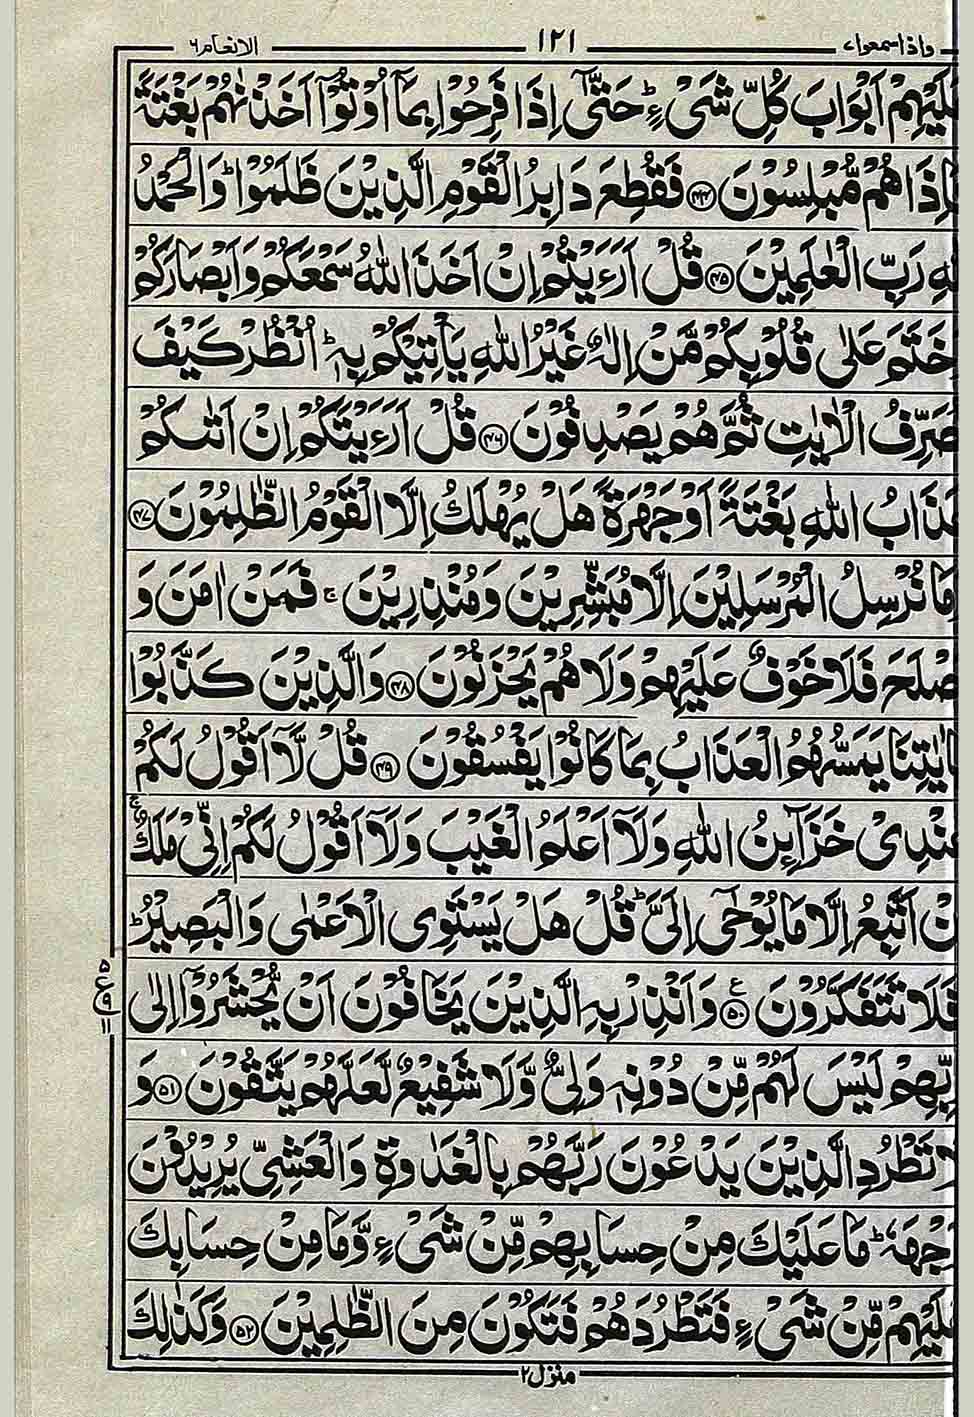 واذا سمعوا ٧ ١٢١ الانعام ٦
عَلَيْهِمْ اَبْوَابَ كُلِّ شَیْءٍ ؕ حَتّٰۤی اِذَا فَرِحُوْا بِمَاۤ اُوْتُوْۤا اَخَذْنٰهُمْ بَغْتَةً
فَاِذَا هُمْ مُّبْلِسُوْنَ ﴿۴۴﴾ فَقُطِعَ دَابِرُ الْقَوْمِ الَّذِیْنَ ظَلَمُوْا ؕ وَالْحَمْدُ
لِلّٰهِ رَبِّ الْعٰلَمِیْنَ ﴿۴۵﴾ قُلْ اَرَءَیْتُمْ اِنْ اَخَذَ اللّٰهُ سَمْعَكُمْ وَاَبْصَارَكُمْ
وَخَتَمَ عَلٰی قُلُوْبِكُمْ مَّنْ اِلٰهٌ غَیْرُ اللّٰهِ یَاْتِیْكُمْ بِهٖ ؕ اُنْظُرْ كَیْفَ
نُصَرِّفُ الْاٰیٰتِ ثُمَّ هُمْ یَصْدِفُوْنَ ﴿۴۶﴾ قُلْ اَرَءَیْتَكُمْ اِنْ اَتٰىكُمْ
عَذَابُ اللّٰهِ بَغْتَةً اَوْ جَهْرَةً هَلْ یُهْلَكُ اِلَّا الْقَوْمُ الظّٰلِمُوْنَ ﴿۴۷﴾
وَمَا نُرْسِلُ الْمُرْسَلِیْنَ اِلَّا مُبَشِّرِیْنَ وَمُنْذِرِیْنَ ۚ فَمَنْ اٰمَنَ وَ
اَصْلَحَ فَلَا خَوْفٌ عَلَیْهِمْ وَلَا هُمْ یَحْزَنُوْنَ ﴿۴۸﴾ وَالَّذِیْنَ كَذَّبُوْا
بِاٰیٰتِنَا یَمَسُّهُمُ الْعَذَابُ بِمَا كَانُوْا یَفْسُقُوْنَ ﴿۴۹﴾ قُلْ لَّاۤ اَقُوْلُ لَكُمْ
عِنْدِیْ خَزَآئِنُ اللّٰهِ وَلَاۤ اَعْلَمُ الْغَیْبَ وَلَاۤ اَقُوْلُ لَكُمْ اِنِّیْ مَلَكٌ ۚ
اِنْ اَتَّبِعُ اِلَّا مَا یُوْحٰۤی اِلَیَّ ؕ قُلْ هَلْ یَسْتَوِی الْاَعْمٰی وَالْبَصِیْرُ ؕ
اَفَلَا تَتَفَكَّرُوْنَ ﴿۵۰﴾ ع وَاَنْذِرْ بِهِ الَّذِیْنَ یَخَافُوْنَ اَنْ یُّحْشَرُوْۤا اِلٰی
۵ ع ۹ ۱۱
رَبِّهِمْ لَیْسَ لَهُمْ مِّنْ دُوْنِهٖ وَلِیٌّ وَّلَا شَفِیْعٌ لَّعَلَّهُمْ یَتَّقُوْنَ ﴿۵۱﴾ وَ
لَا تَطْرُدِ الَّذِیْنَ یَدْعُوْنَ رَبَّهُمْ بِالْغَدٰوةِ وَالْعَشِیِّ یُرِیْدُوْنَ
وَجْهَهٗ ؕ مَا عَلَیْكَ مِنْ حِسَابِهِمْ مِّنْ شَیْءٍ وَّمَا مِنْ حِسَابِكَ
عَلَیْهِمْ مِّنْ شَیْءٍ فَتَطْرُدَهُمْ فَتَكُوْنَ مِنَ الظّٰلِمِیْنَ ﴿۵۲﴾ وَكَذٰلِكَ
منزل ۲